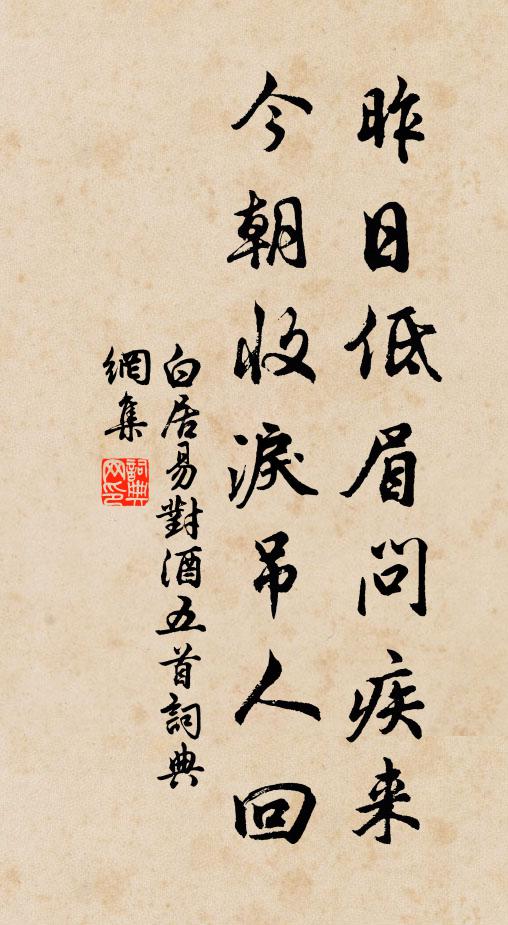 昨日低眉问疾来
今朝收淚吊人回
白居易對酒五首詞典
網集
詞典
网印